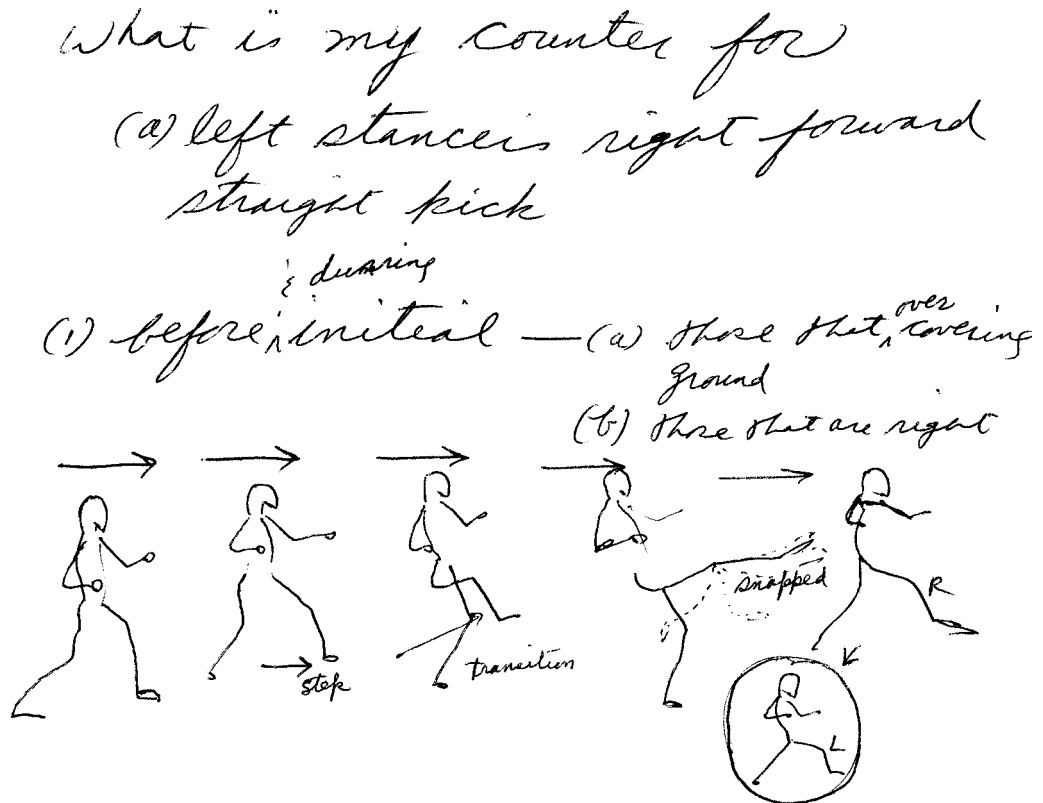 What is my counter for
(a) left stancers right forward
straight kick
& during
(1) before ^ initial — (a) those that ^ covering
over
ground
(b) those that are right
step
transition
snapped
R
L